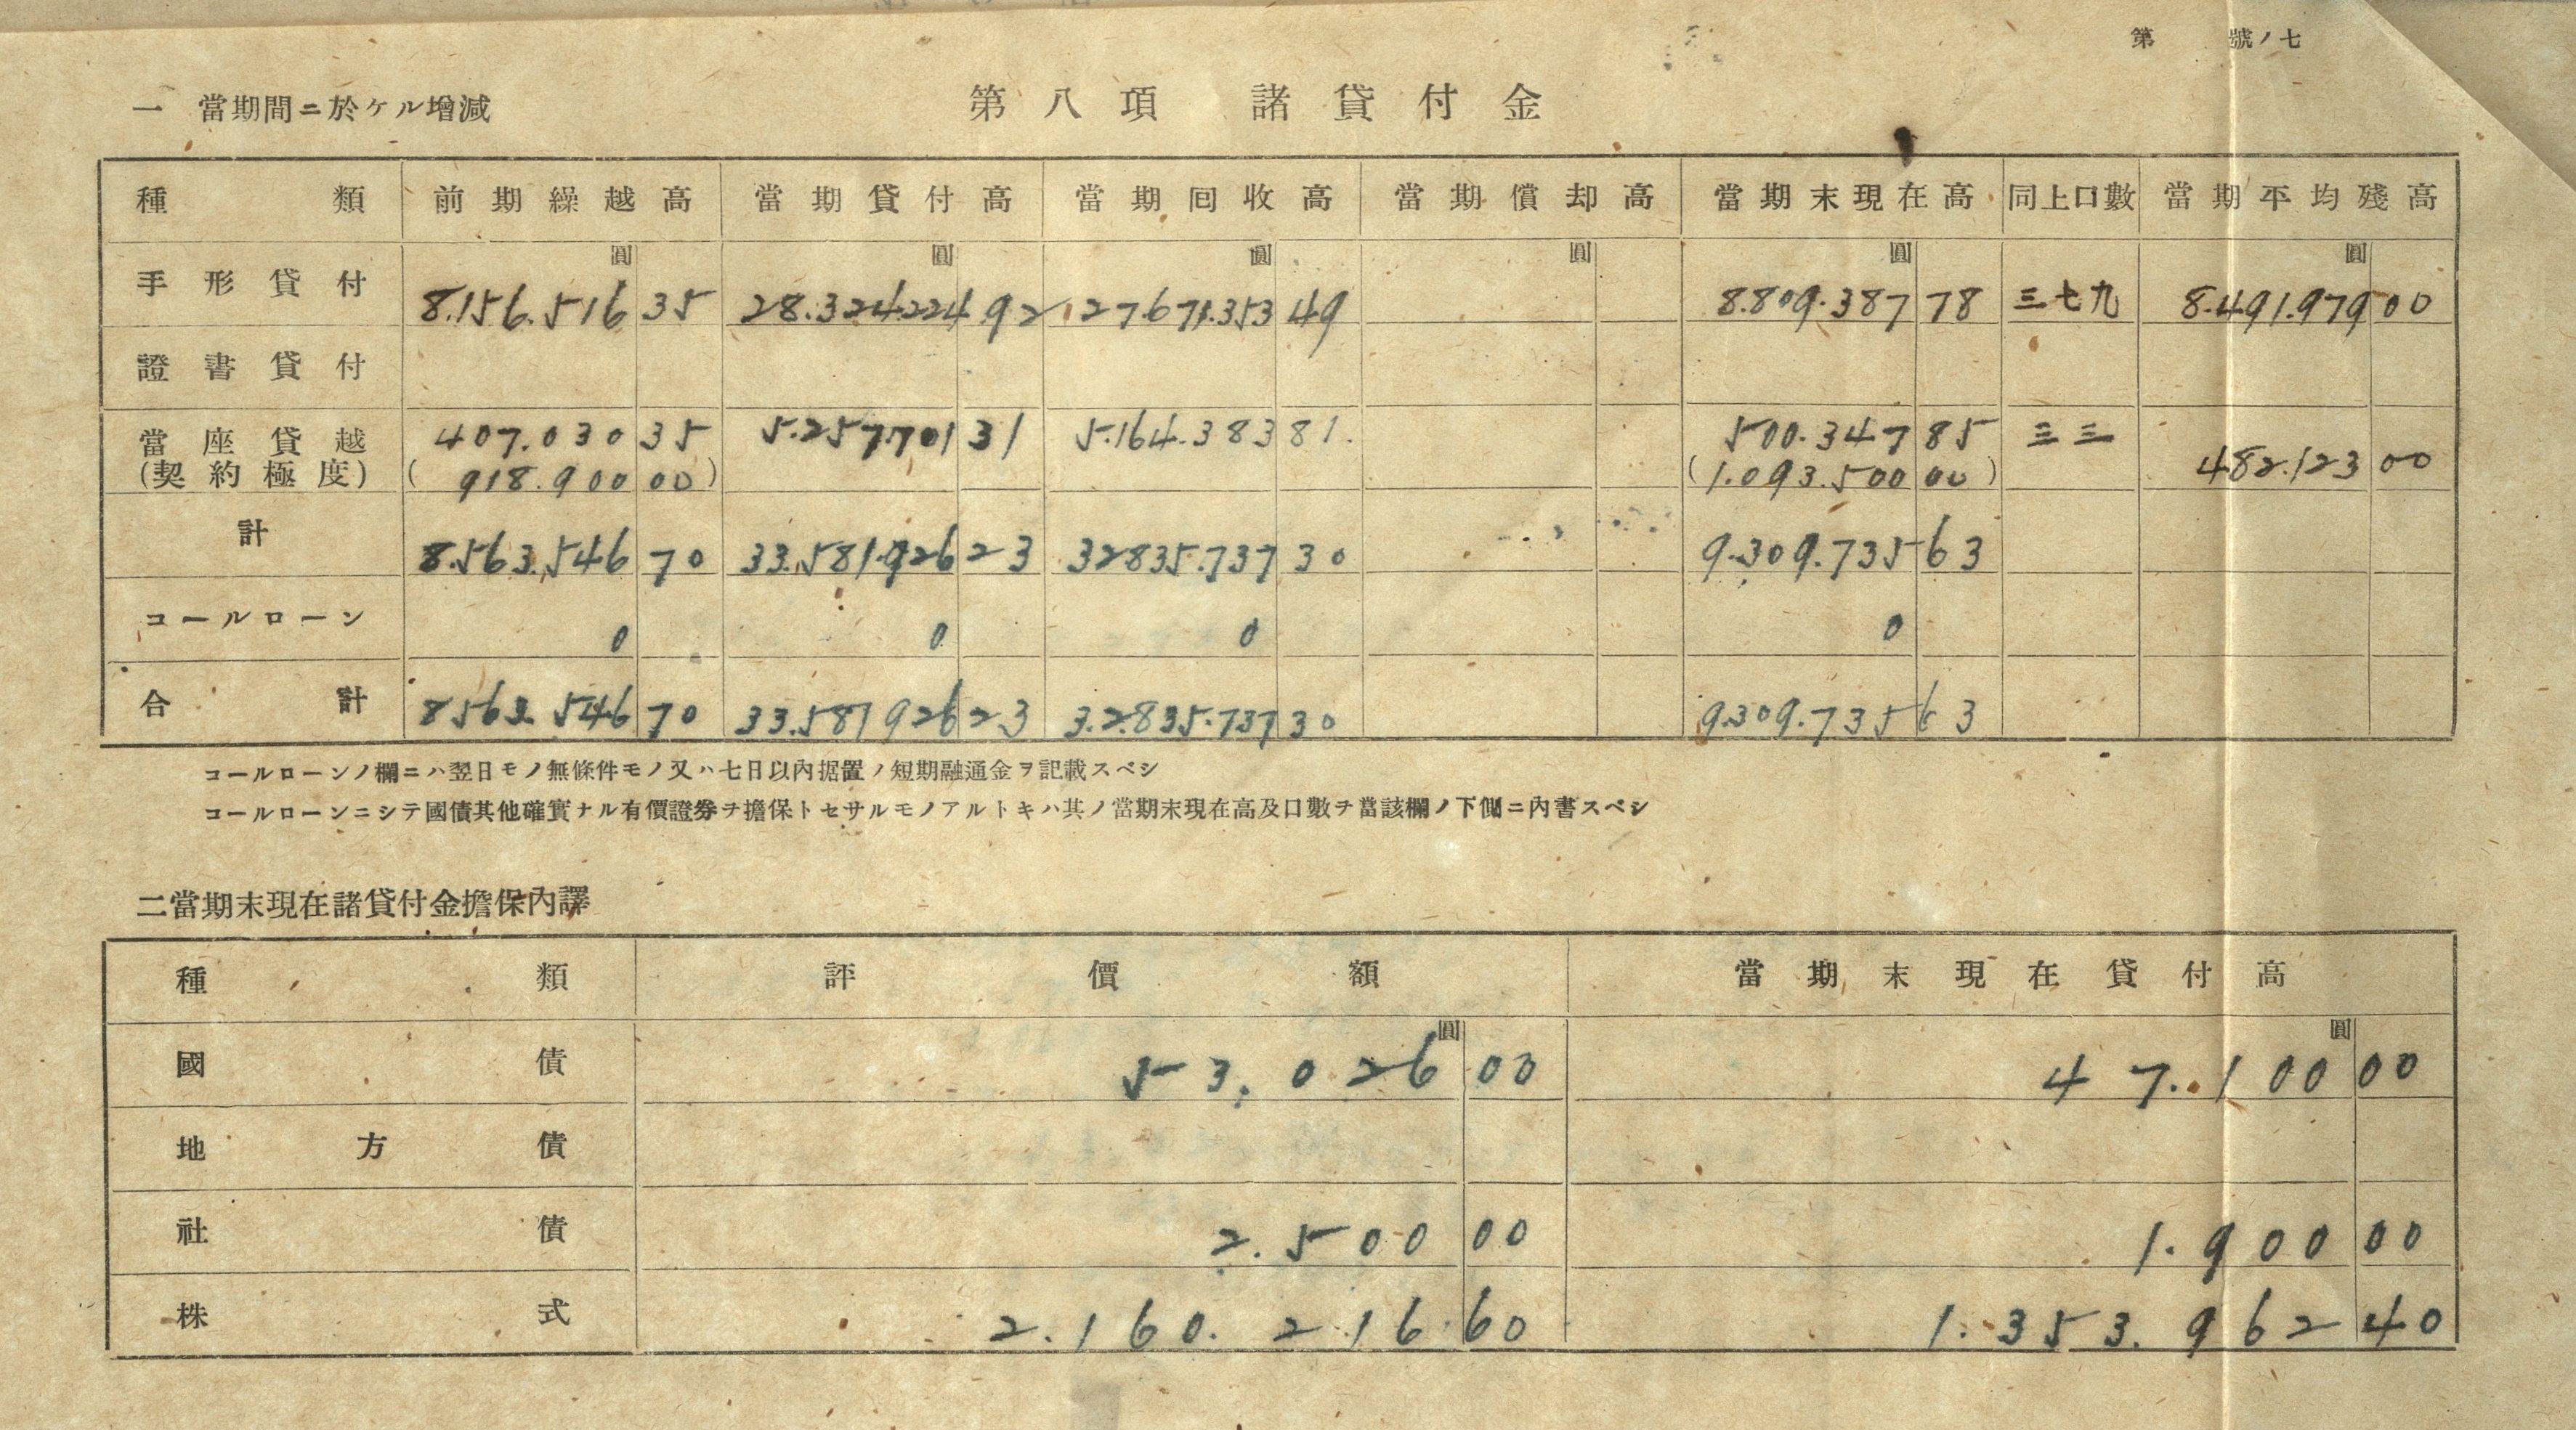 第 號ノ七
一 當期間ニ於ケル增減 第八項 諸貸付金
種類 前期繰越高 當期貸付高 當期回收高 當期償却高 當期末現在高 同上口數 當期平均殘高
圓 圓 圓 圓 圓 圓
手形貸付 8.156.516 35 28.324.224 92 27.671.353 49 8.809.387 78 三七九 8.491.979 00
證書貸付
當座貸越 407.030 35 5.257.701 31 5.164.383 81. 500.347 85 三三 482.123 00
(契約極度) (918.900 00) (1.093.500 00)
計 8.563.546 70 33.581.926 23 32835.737 30 9.309.735 63
コールローン 0 0 0 0
合計 8563.546 70 33.581926 23 32.835.737 30 9.309.735 63
コールローンノ欄ニハ翌日モノ無條件モノ又ハ七日以內据置ノ短期融通金ヲ記載スベシ
コールローンニシテ國債其他確實ナル有價證券ヲ擔保トセサルモノアルトキハ其ノ當期末現在高及口數ヲ當該欄ノ下側ニ內書スベシ
二當期末現在諸貸付金擔保內譯
種類 評價額 當期末現在貸付高
圓 圓
國債 53.026 00 47.100 00
地方債
社債 2.500 00 1.900 00
株式 2.160.216 60 1.353.962 40